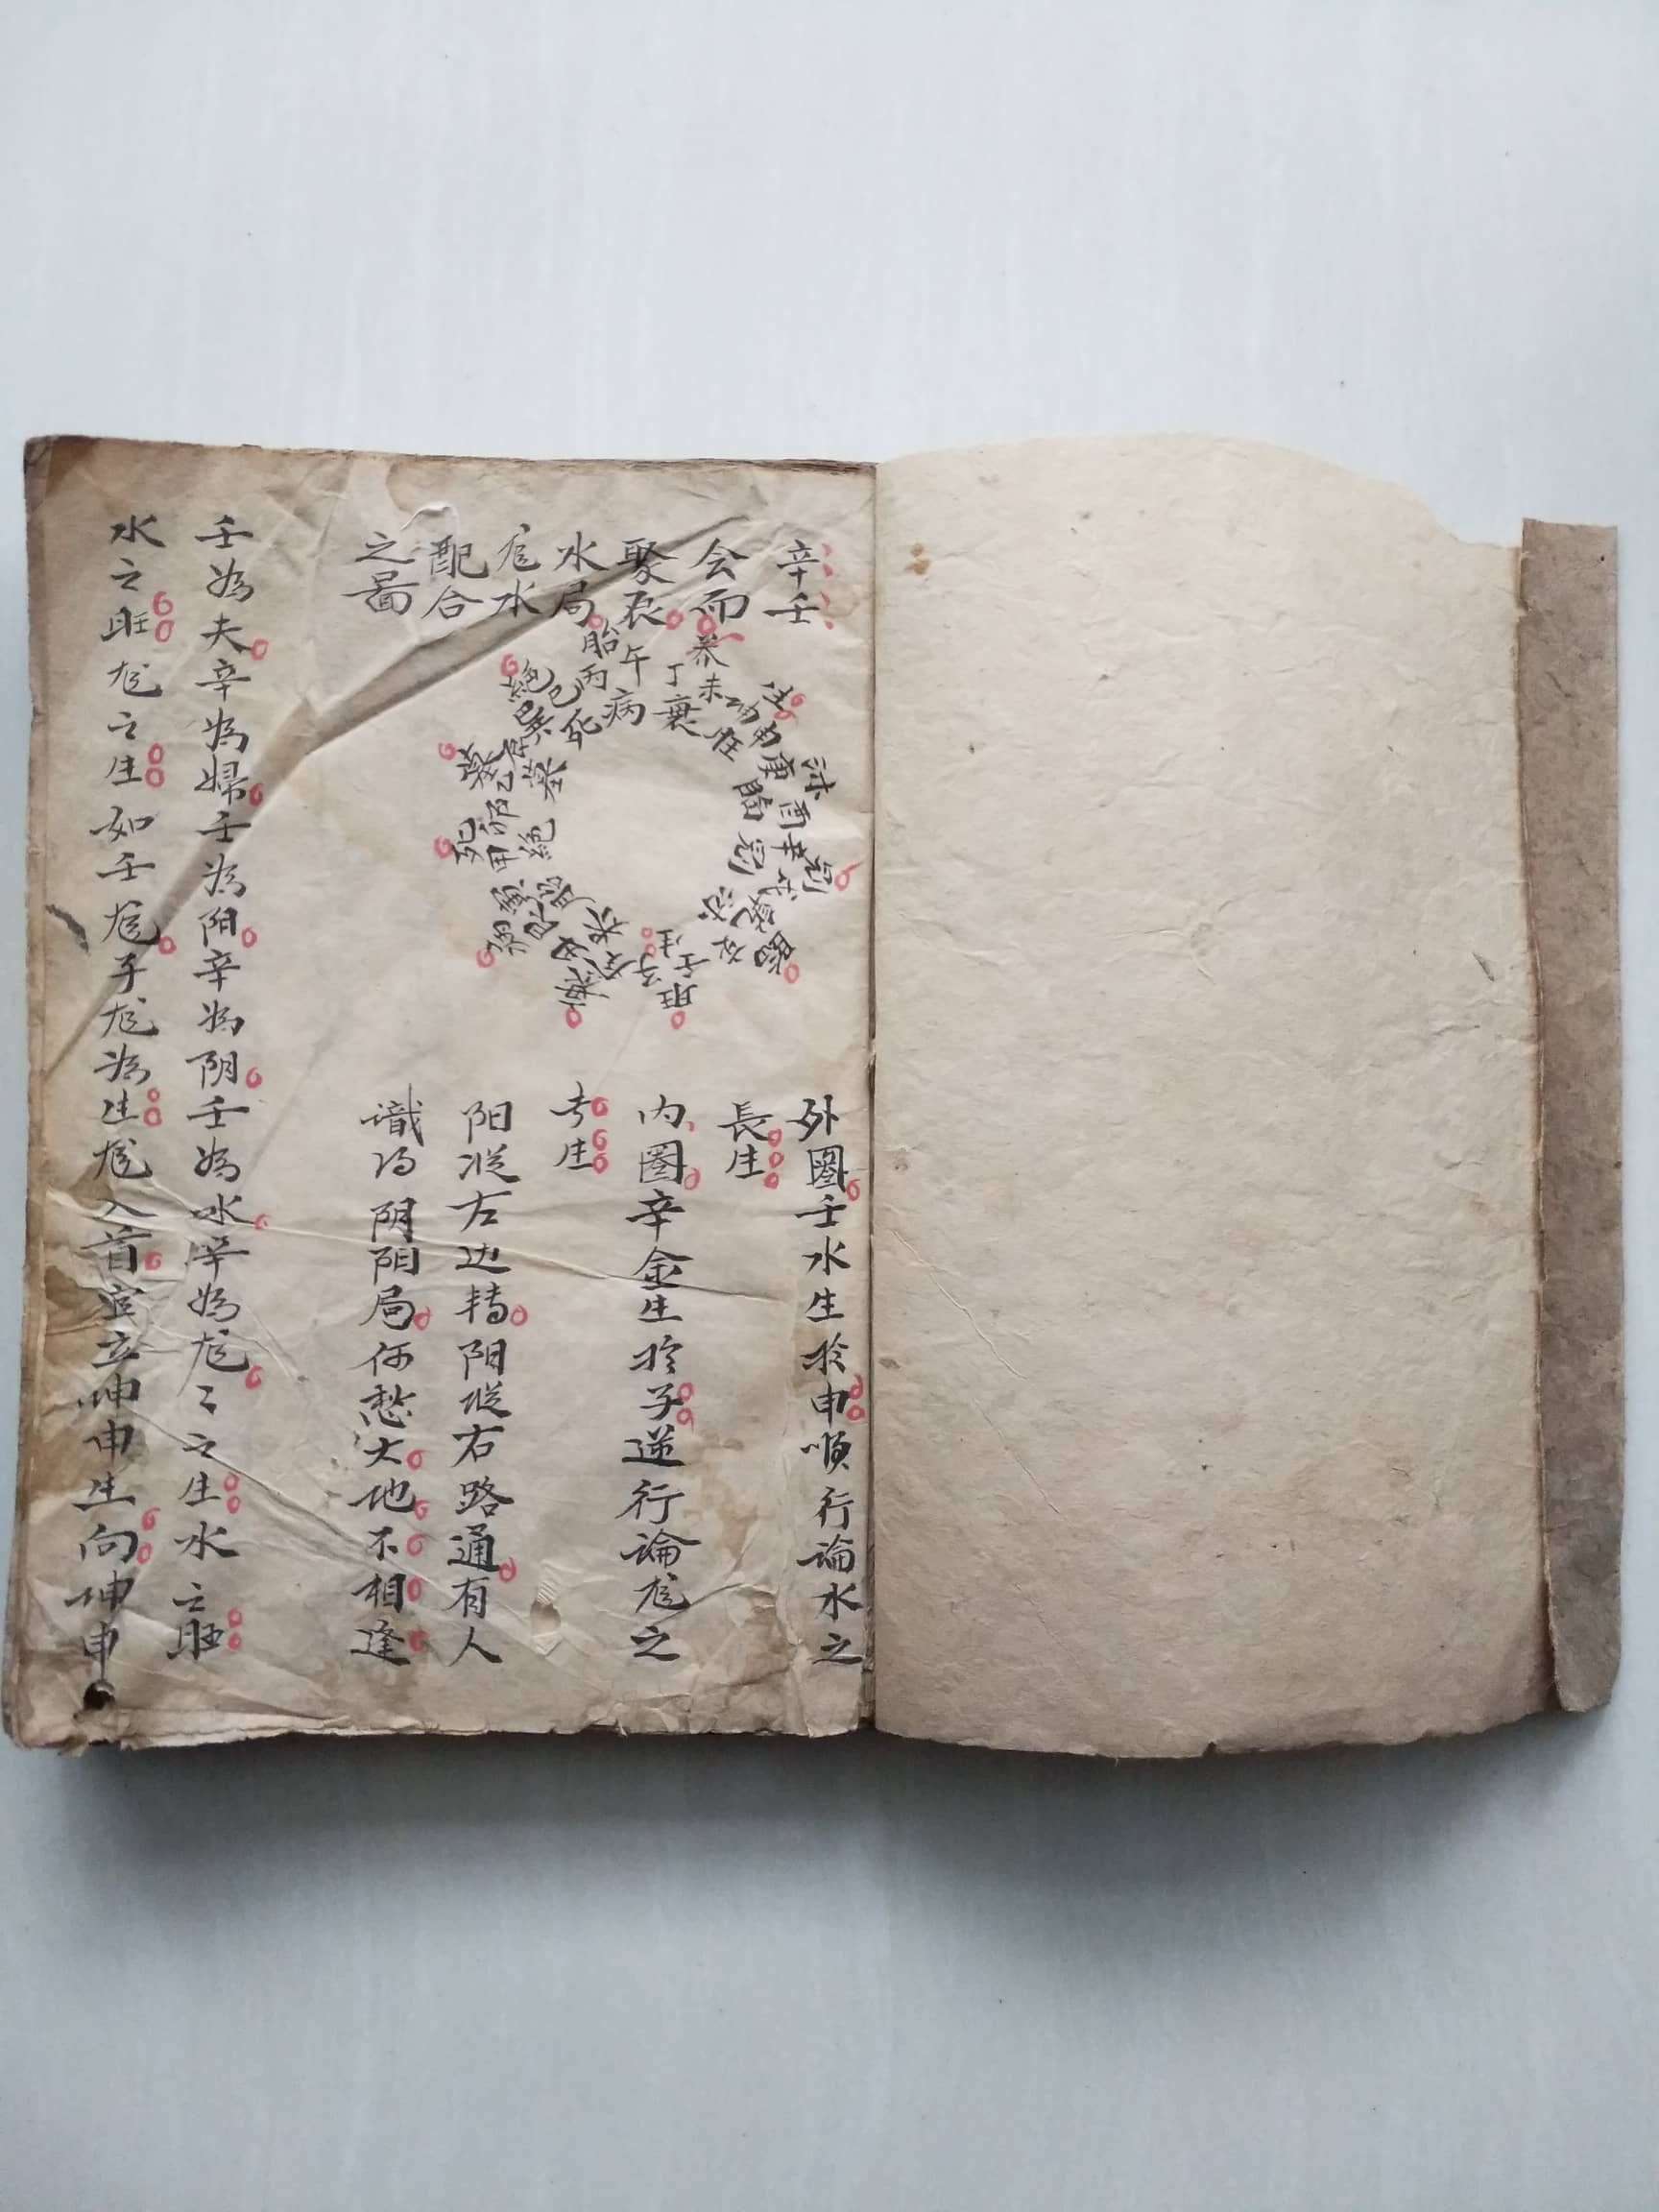 辛壬
会而
聚辰
水局
龙水
配合
之啚
养 生 沐 冠 临 旺 衰 病 死 墓 绝 胎
未坤申庚酉辛戌乾亥壬子癸丑艮寅甲卯乙辰巽巳丙午丁
衰 旺 临 冠 沐 生 养 胎 绝 墓 死 病
外圈壬水生於申順行論水之
長生
内圈辛金生於子逆行論龙之
長生
阳從左边轉阳從右路通有人
識得阴阳局何愁大地不相逢
壬為夫辛為婦壬為阳辛為阴壬為水辛為龙〻之生水之旺
水之旺龙之生如壬龙子龙為生龙入首宜立坤申生向坤申